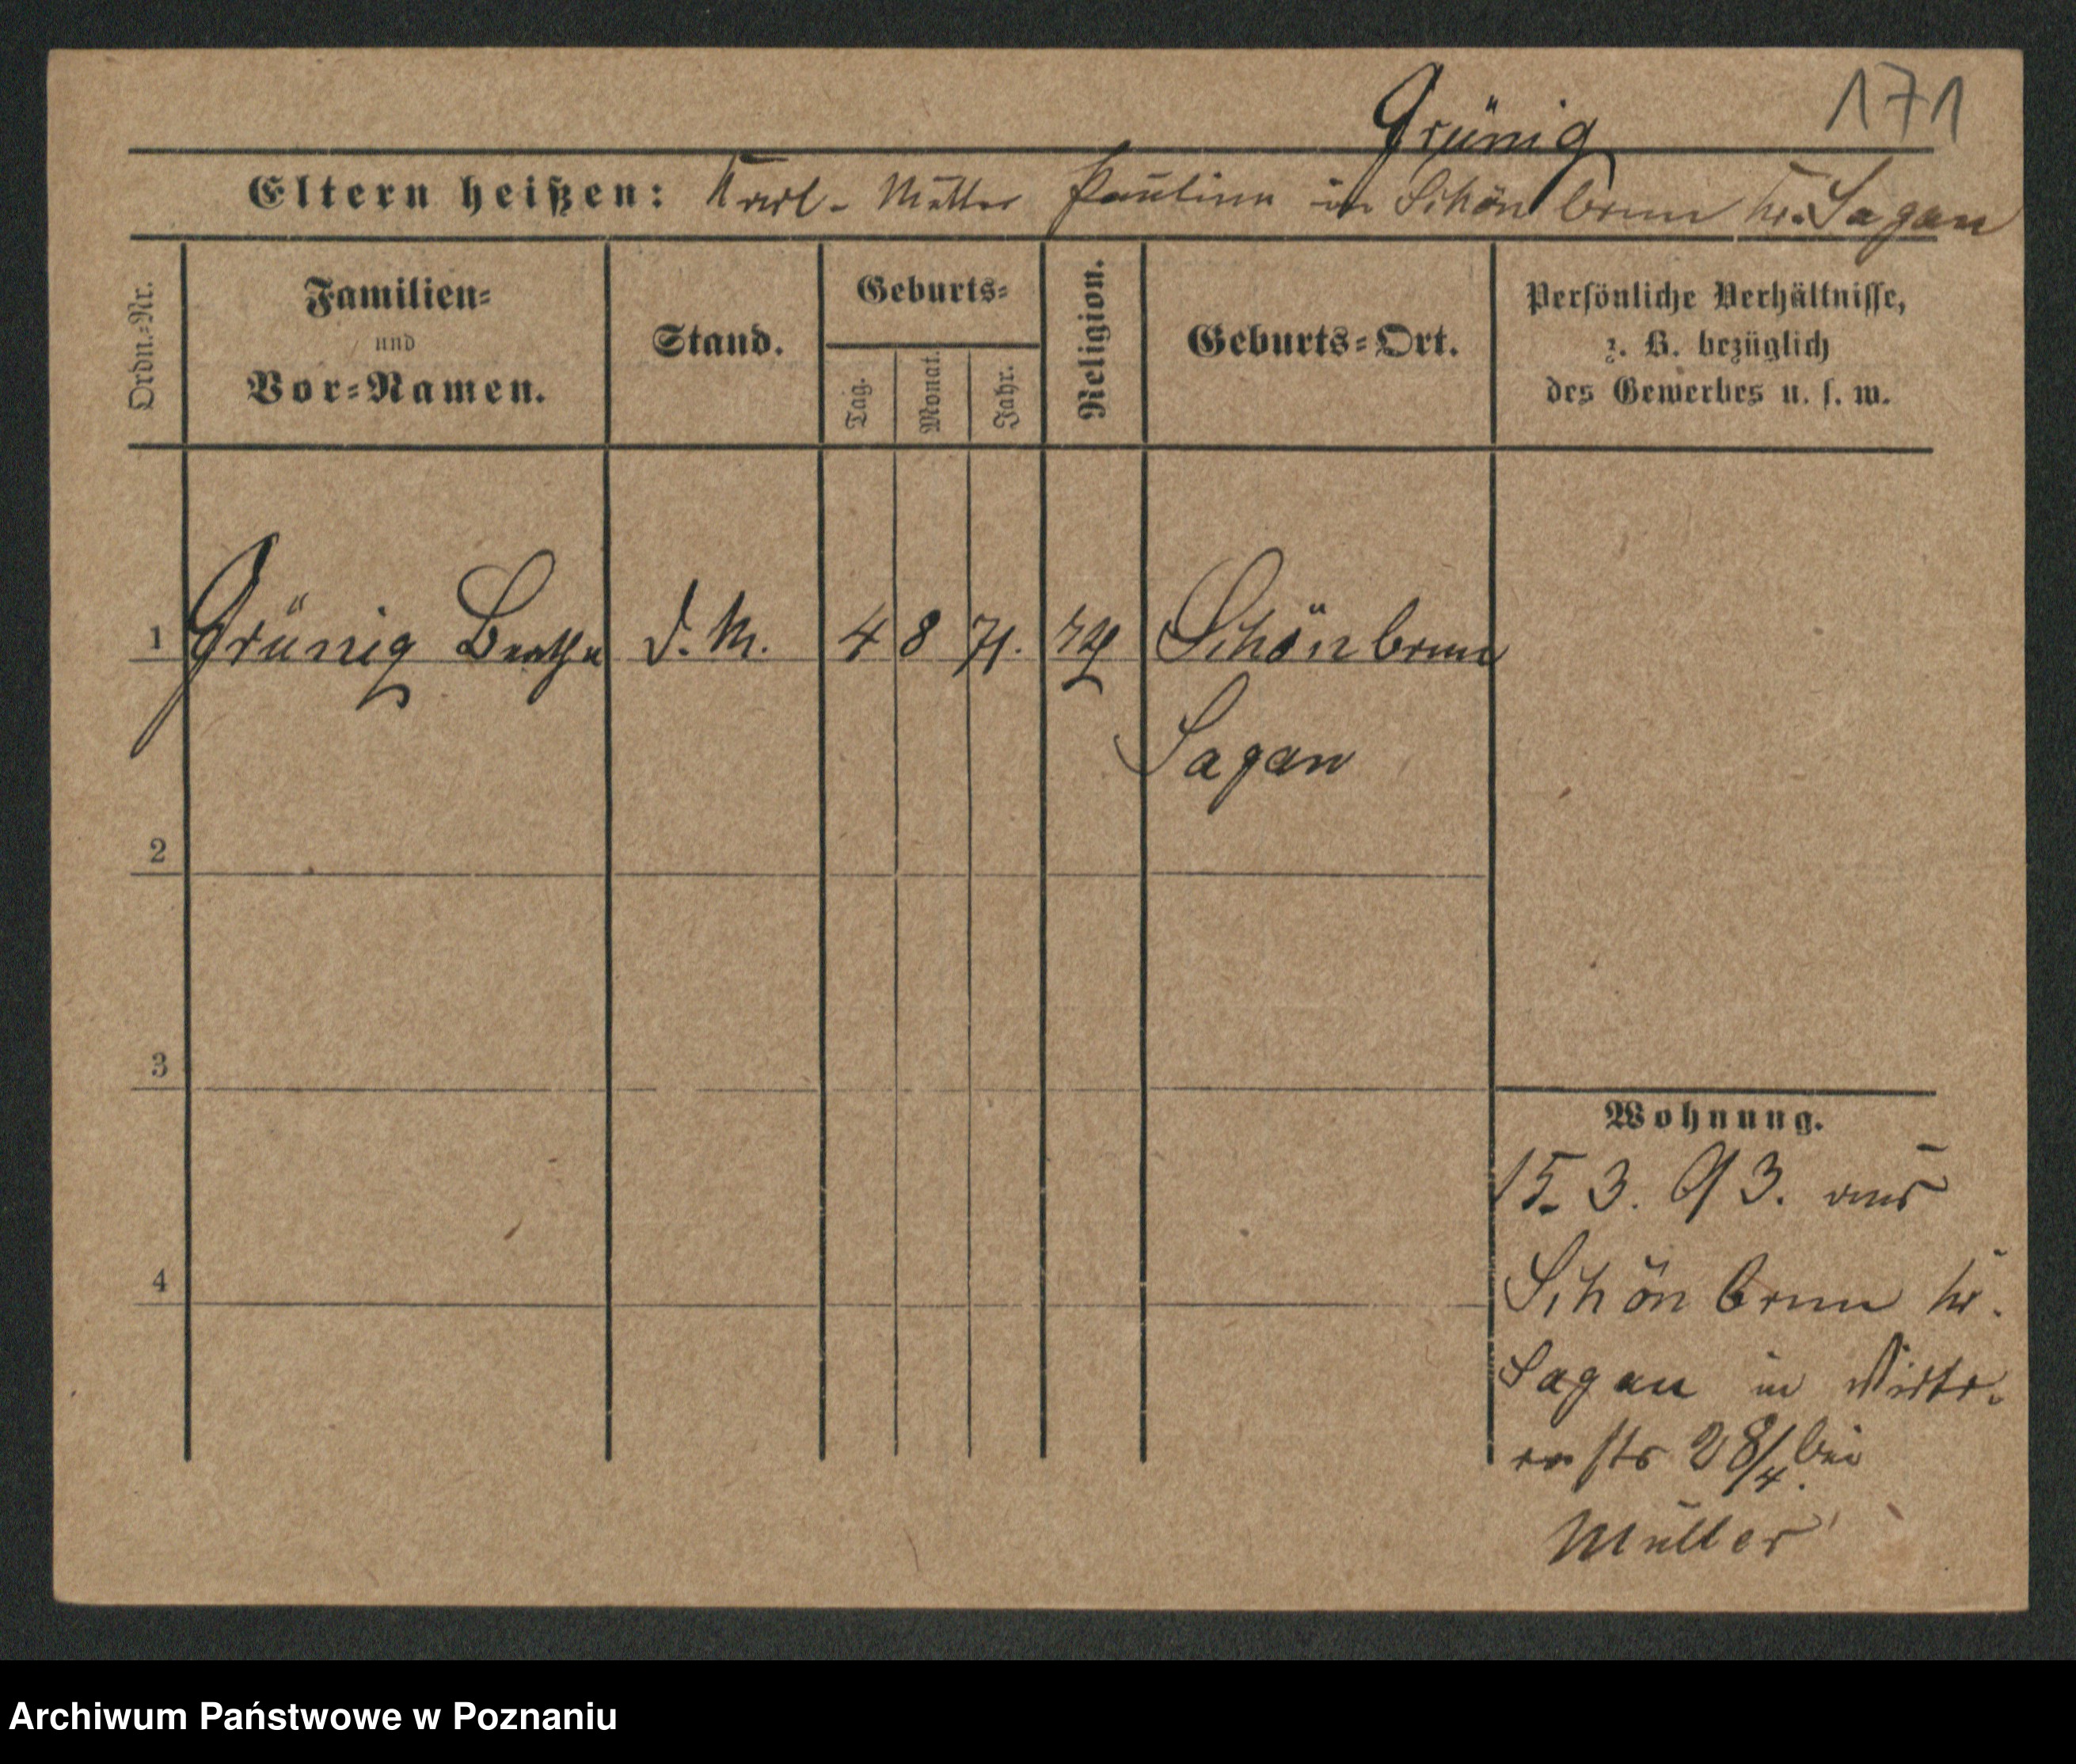 171
Grünig
Eltern heißen: Karl - Mutter Pauline in Schönbrunn Kr. Sagan
Ordn.=Nr.
Familien=
und
Vor=Namen.
Stand.
Geburts=
Tag.
Monat.
Jahr.
Religion.
Geburts=Ort.
Persönliche Verhältnisse,
z. B. bezüglich
des Gewerbes u. s. w.
1 Grünig Bertha d. M. 4 8 71. Schönbrunn
Sagan
2
3
4
Wohnung.
15. 3. 93. aus
Schönbrunn Kr.
Sagan in
28/4. bei
Müller
Archiwum Państwowe w Poznaniu